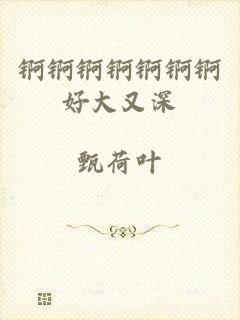 锕锕锕锕锕锕锕
好大又深
甄荷叶